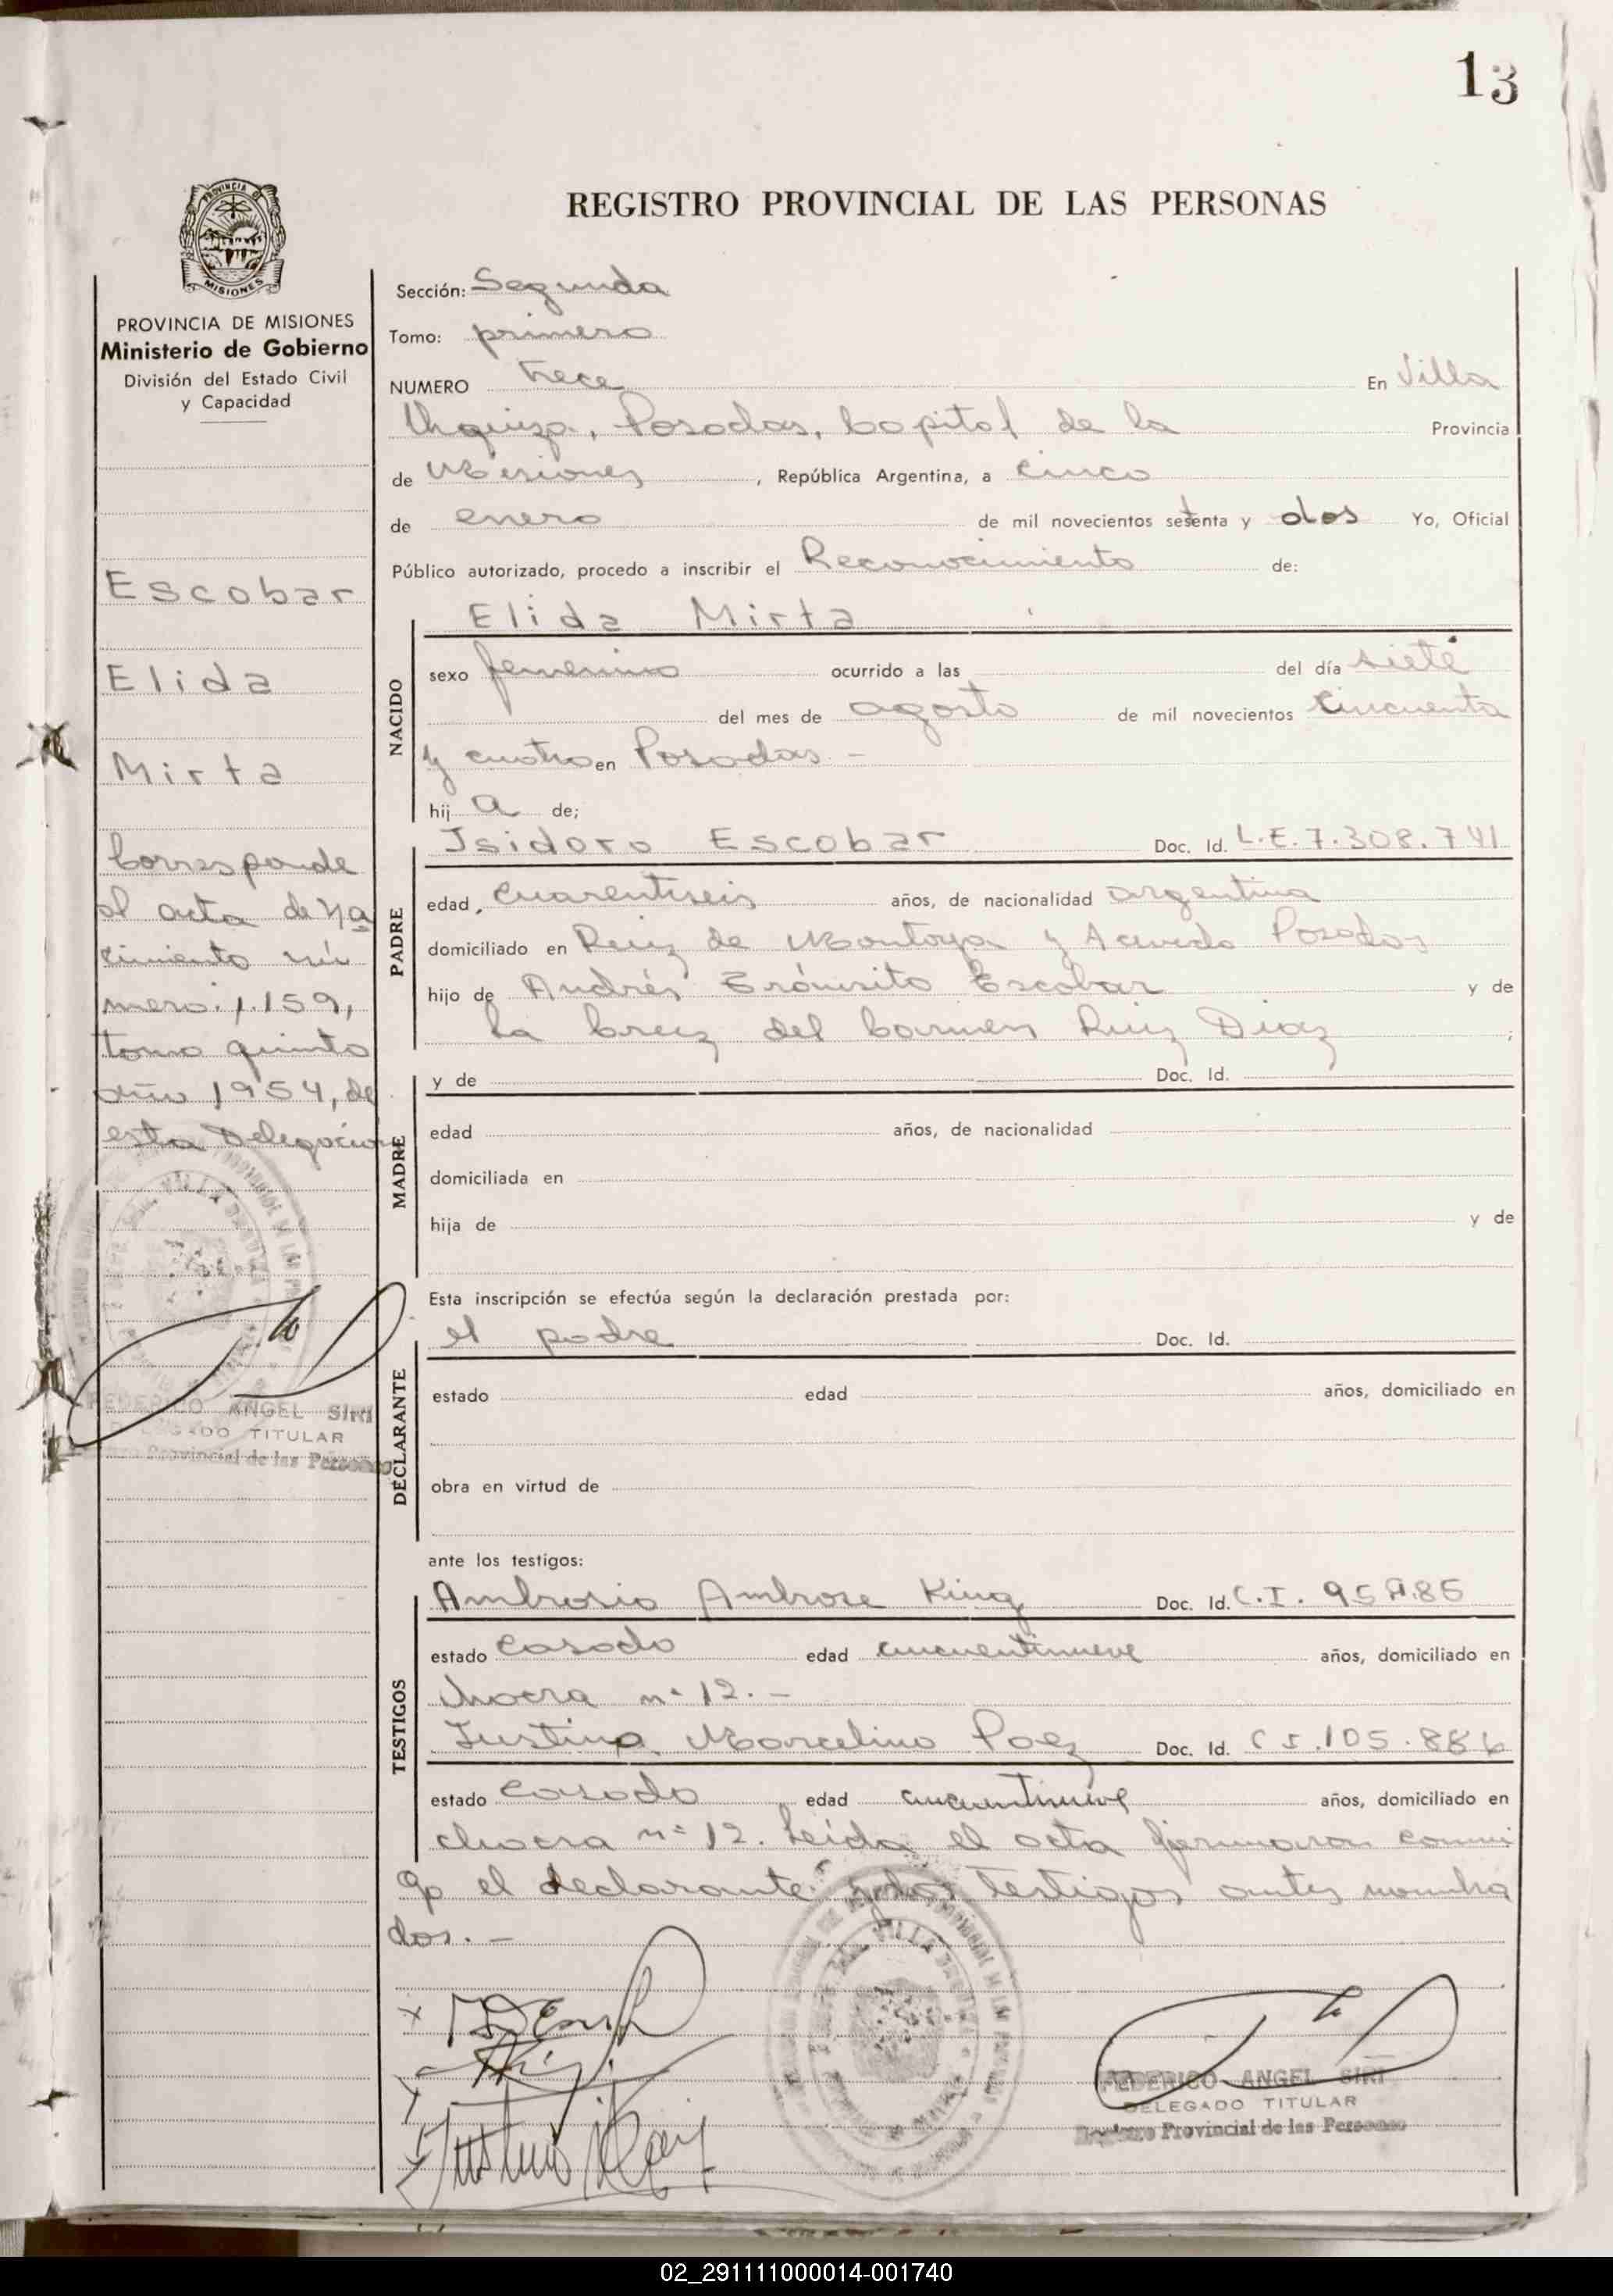 13
PROVINCIA DE
MISIONES
REGISTRO PROVINCIAL DE LAS PERSONAS
PROVINCIA DE MISIONES
Ministerio de Gobierno
División del Estado Civil
y Capacidad
Escobar
Elida
Mirta
Corresponde
al acta de na
cimiento nú
mero 1.159,
tomo quinto
año 1954, de
esta Delegación
FEDERICO ANGEL SIRI
DELEGADO TITULAR
Provincial de las Personas
Sección: Segunda
Tomo: primero
NUMERO trece En Villa
Urquiza, Posadas, Capital de la Provincia
de Misiones, República Argentina, a cinco
de enero de mil novecientos setenta y dos Yo, Oficial
Público autorizado, procedo a inscribir el Reconocimiento de:
NACIDO
Elida Mirta
sexo femenino ocurrido a las del día siete
del mes de agosto de mil novecientos cincuenta
y cuatro en Posadas -
hij a de;
PADRE
Isidoro Escobar Doc. Id. L.E. 7.308.741
edad, cuarentiseis años, de nacionalidad argentina
domiciliado en Ruiz de Montoya y Acevedo Posadas
hijo de Andrés Escobar y de
la Cruz del Carmen Ruiz Diaz ;
MADRE
y de Doc. Id.
edad años, de nacionalidad
domiciliada en
hija de y de
Esta inscripción se efectúa según la declaración prestada por:
DECLARANTE
el padre Doc. Id.
estado edad años, domiciliado en
obra en virtud de
ante los testigos:
TESTIGOS
Ambrosio Ambrose King Doc. Id. C.I.
estado casado edad cincuentinueve años, domiciliado en
chacra nº 12. -
Justino Marcelino Paez Doc. Id. C I. 105.886
estado casado edad cincuentinueve años, domiciliado en
chacra nº 12. Leida el acta firmaron conmi
go el declarante y los testigos antes nombra
dos. -
Justino Paez
FEDERICO ANGEL SIRI
DELEGADO TITULAR
Registro Provincial de las Personas
02_291111000014-001740